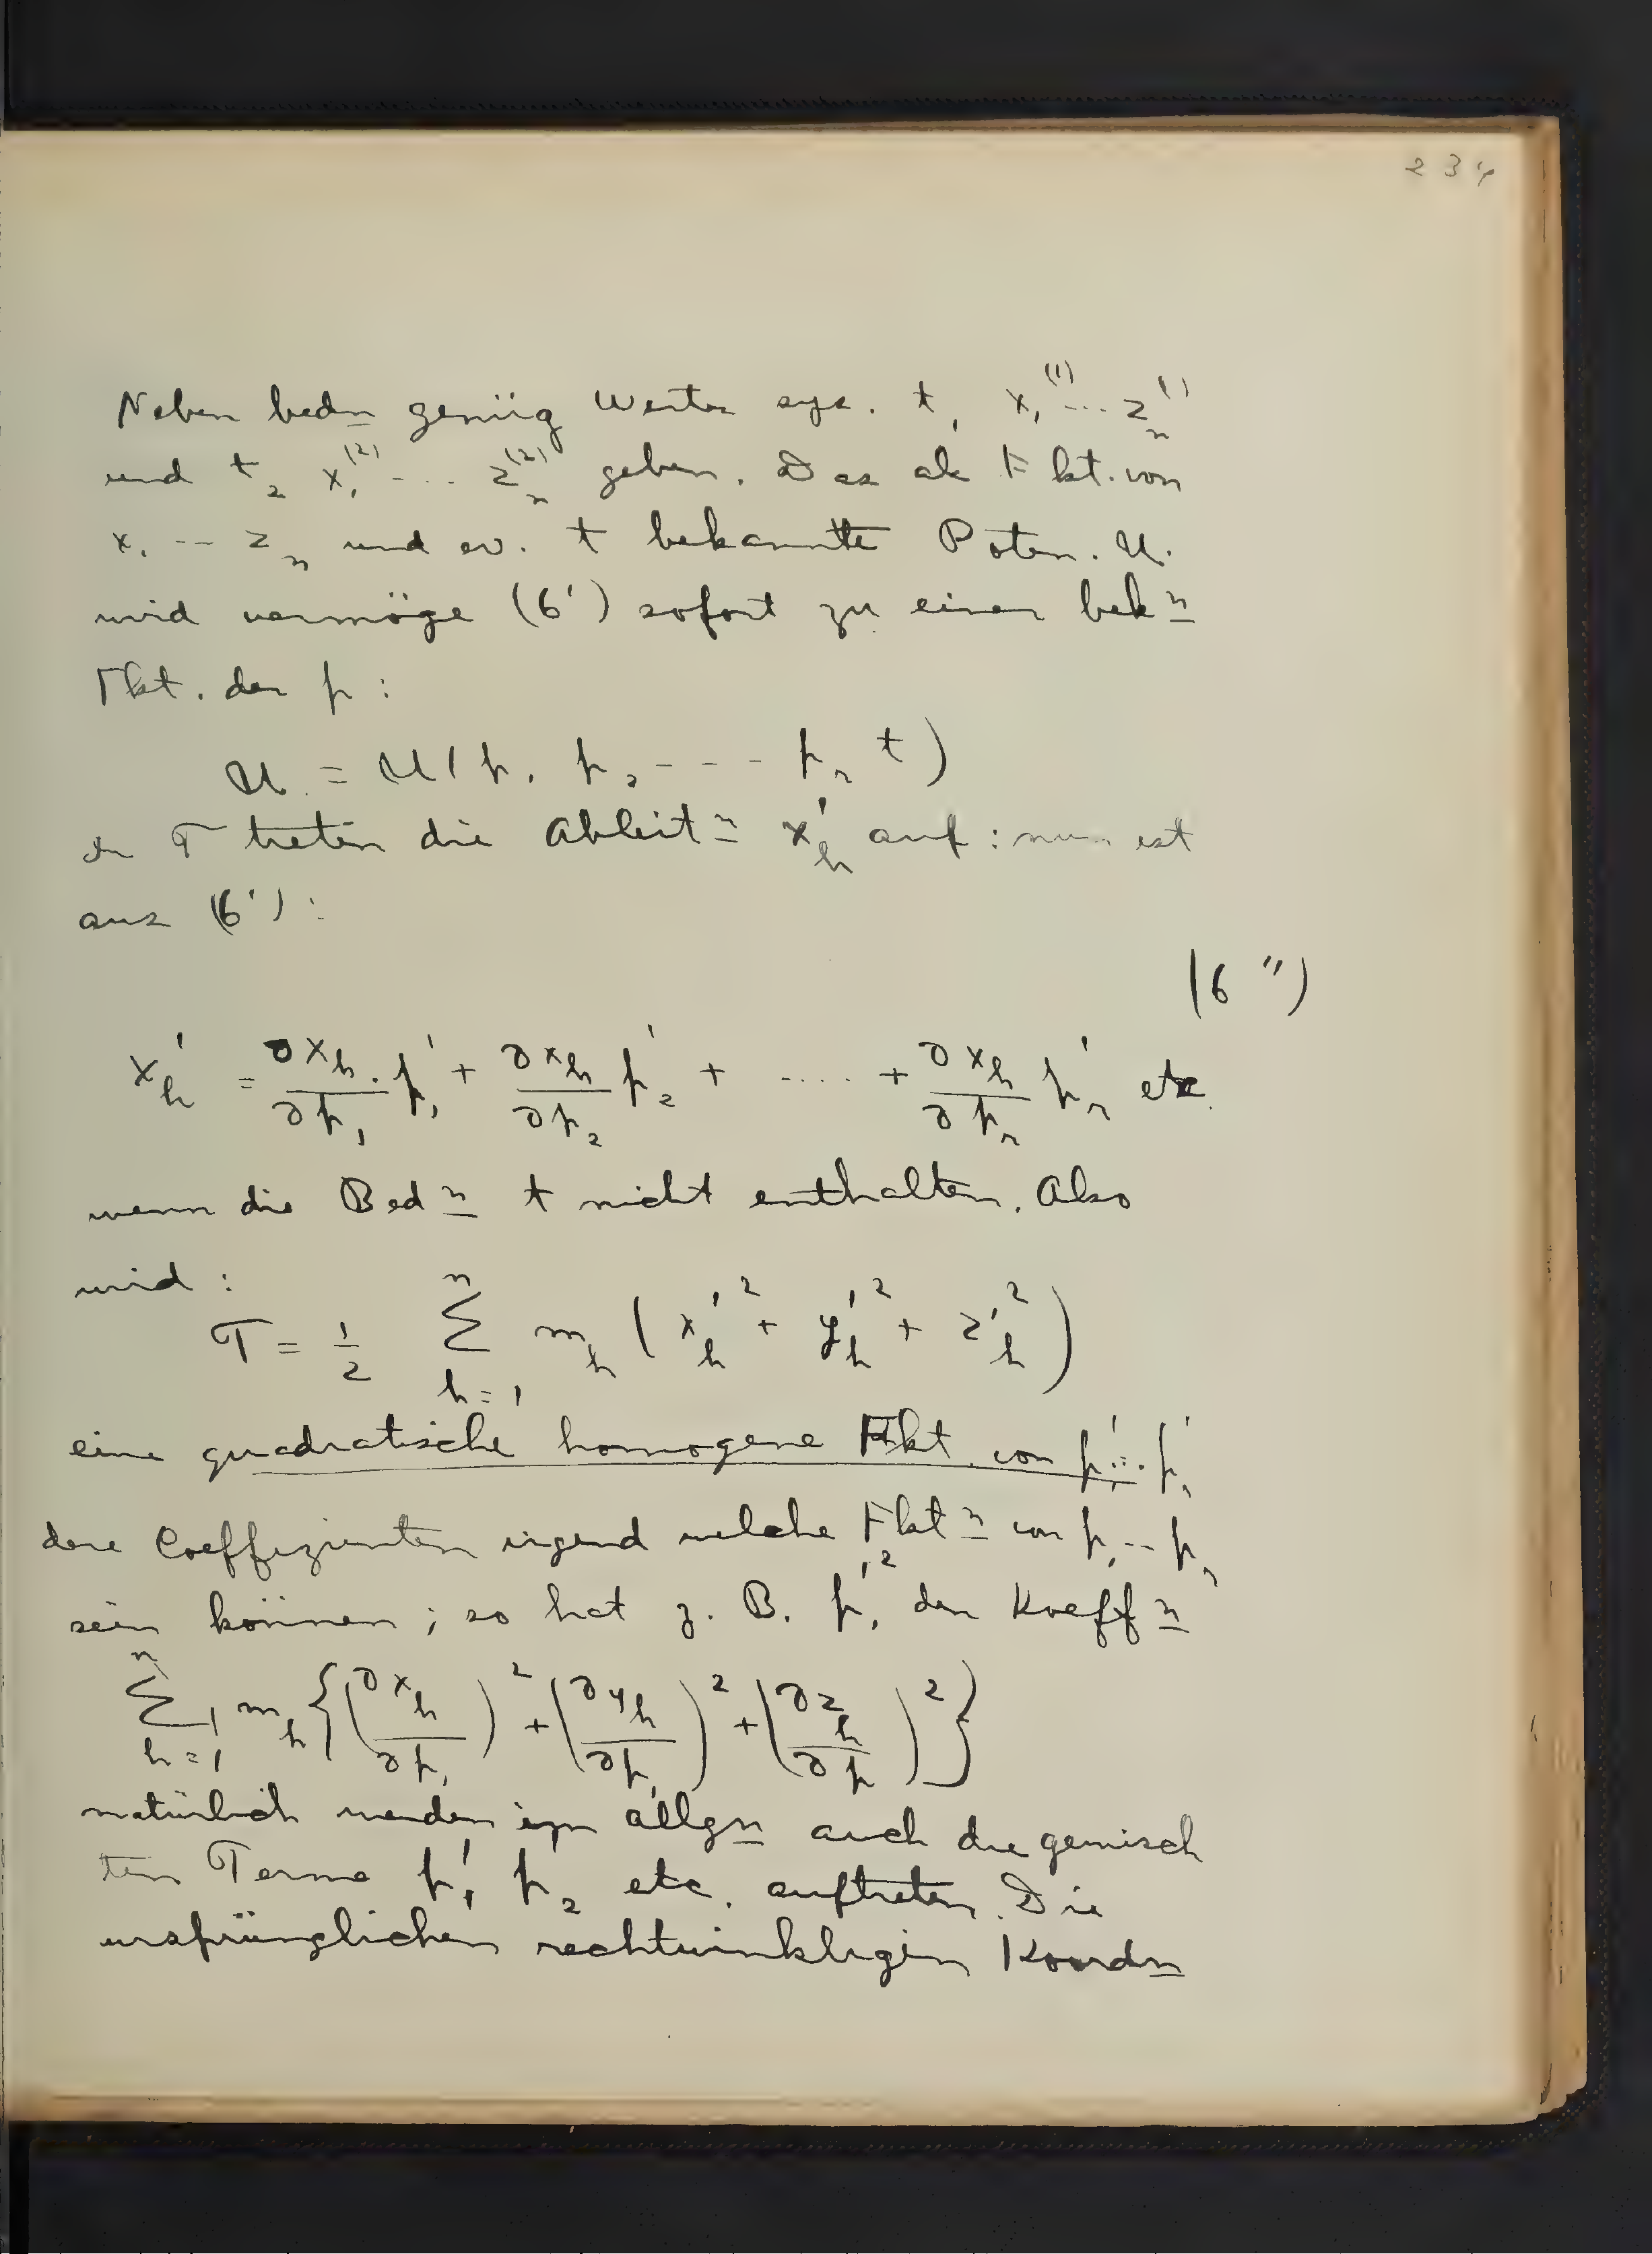 234
Neben bedn genüg Werte sys. t₁ x₁⁽¹⁾ ... zₙ⁽¹⁾
und t₂ x₁⁽²⁾ ... zₙ⁽²⁾ geben. Das als Fkt. von
x₁ ... zₙ und ev. t bekannte Poten. U.
wird vermöge (6') sofort zu einer bekn
Fkt. der p:
U = U(p₁ p₂ --- pᵣ t)
In T treten die Ableitn x'ₕ auf: nun ist
aus (6'):
(6'')
x'ₕ = ∂xₕ/∂p₁ · p'₁ + ∂xₕ/∂p₂ p'₂ + ..... + ∂xₕ/∂pᵣ p'ᵣ etc.
wenn die Bedn t nicht enthalten. Also
wird:
T = 1/2 Σₕ₌₁ⁿ mₕ (x'ₕ² + y'ₕ² + z'ₕ²)
eine quadratische homogene Fkt. von p'₁ ... p'ᵣ
dere Coeffizienten irgend welche Fktn von p₁ ... pᵣ
sein können; so hat z. B. p'₁² den Koeffn
Σₕ₌₁ⁿ mₕ {(∂xₕ/∂p₁)² + (∂yₕ/∂p₁)² + (∂zₕ/∂p)²}
natürlich werden im allgn auch die gemisch
ten Terme p'₁ p₂ etc. auftreten. Die
ursprünglichen rechtwinkligen Koordn